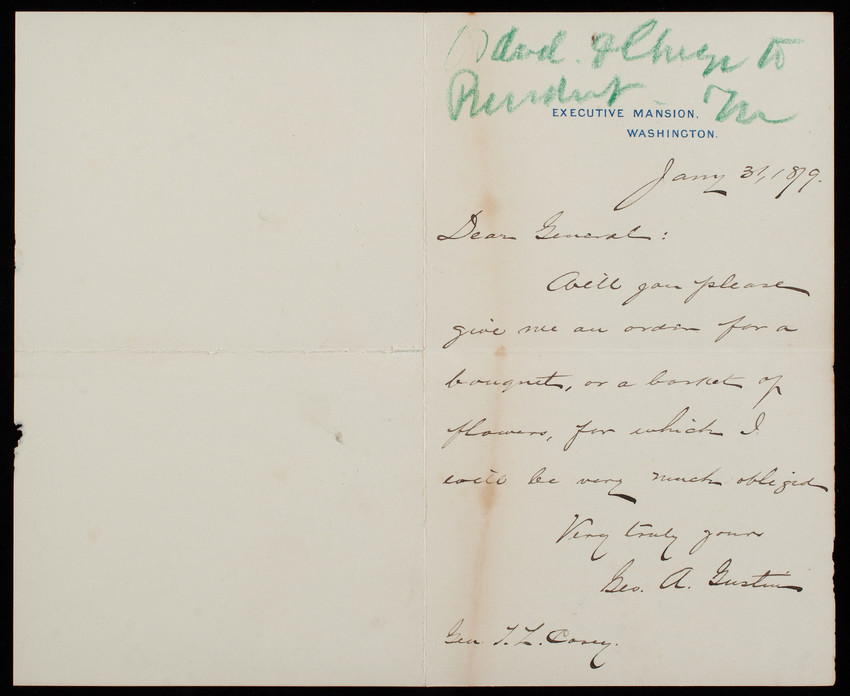 & Charge to
President
EXECUTIVE MANSION,
WASHINGTON.
Jany 31, 1879.
Dear General:
Will you please
give me an order for a
bouquet, or a basket of
flowers, for which I
will be very much obliged
Very truly yours
Geo. A. Gustin
Gen. T. L. Casey.